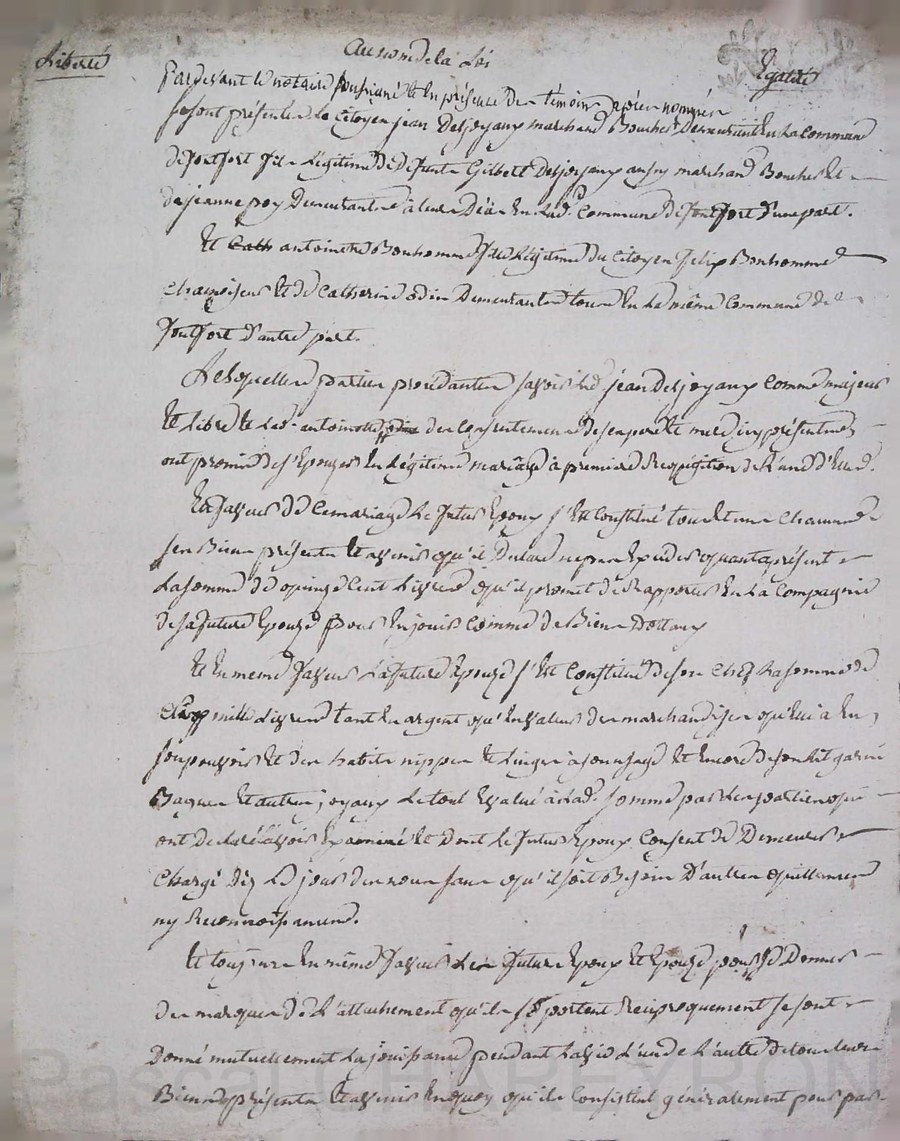 Liberté
Au nom de la Loi
Egalité
Pardevant le notaire soussigné et en présence des témoins après nommés
se sont présentés Le citoyen jean Desjoyaux marchand Boucher Demeurant En La commune
de fontfort fils Légitime de défunts Gilbert Desjoyaux aussy marchand Boucher et
de jeanne poy Demeurante à leur décès En lad. Commune de fontfort d'une part.
Et Cath antoinette Bonhomme fille Légitime du citoyen felix Bonhomme
chamoiseur et de Catherine odin Demeurantes tous En La même Commune de
fontfort d'autre part.
Lesquelles parties procédantes savoir led. jean Desjoyaux Comme majeur
et libre et Lad. antoinette du Consentement de ses père et mère icy présents
ont promis de s'Epouser En Légitime mariage à première Requisition de L'un d'Eux.
En faveur de Ce mariage Le futur Epoux s'Est Constitué tous et uns Chacuns
ses Biens présents et avenir qu'il Déclare ne pas Exceder quant à présent
La somme de quinze Cent Livres qu'il promet de Rapporter En La Compagnie
de sa future Epouze pour En jouir Comme de Biens Dottaux
Et En meme faveur La future Epouze s'Est Constitué de son Chef La somme de
Cinq mille Livres tant En argent qu'En valeur des marchandises qu'Elle a En
son pouvoir et des habits nippes et Linges à son usage et encore de son Lit garni
Bagues et autres joyaux Le tout Evalué à Lad. somme par Les parties qui
ont déclaré L'avoir Examiné et Dont Le futur Epoux Consent de Demeurer
Chargé Dez Le jour des noces sans qu'il soit Besoin D'autres quittances
ny Reconnoissances.
Et toujours En même faveur Les futurs Epoux et Epouze pour se Donner
des marques de L'attachement qu'ils se portent Réciproquement se sont
Donné mutuellement La jouissance pendant La vie L'un de L'autre de tous leurs
Biens présents et avenir En quoy qu'ils Consistent généralement pour par
Pascal CHAREYRON